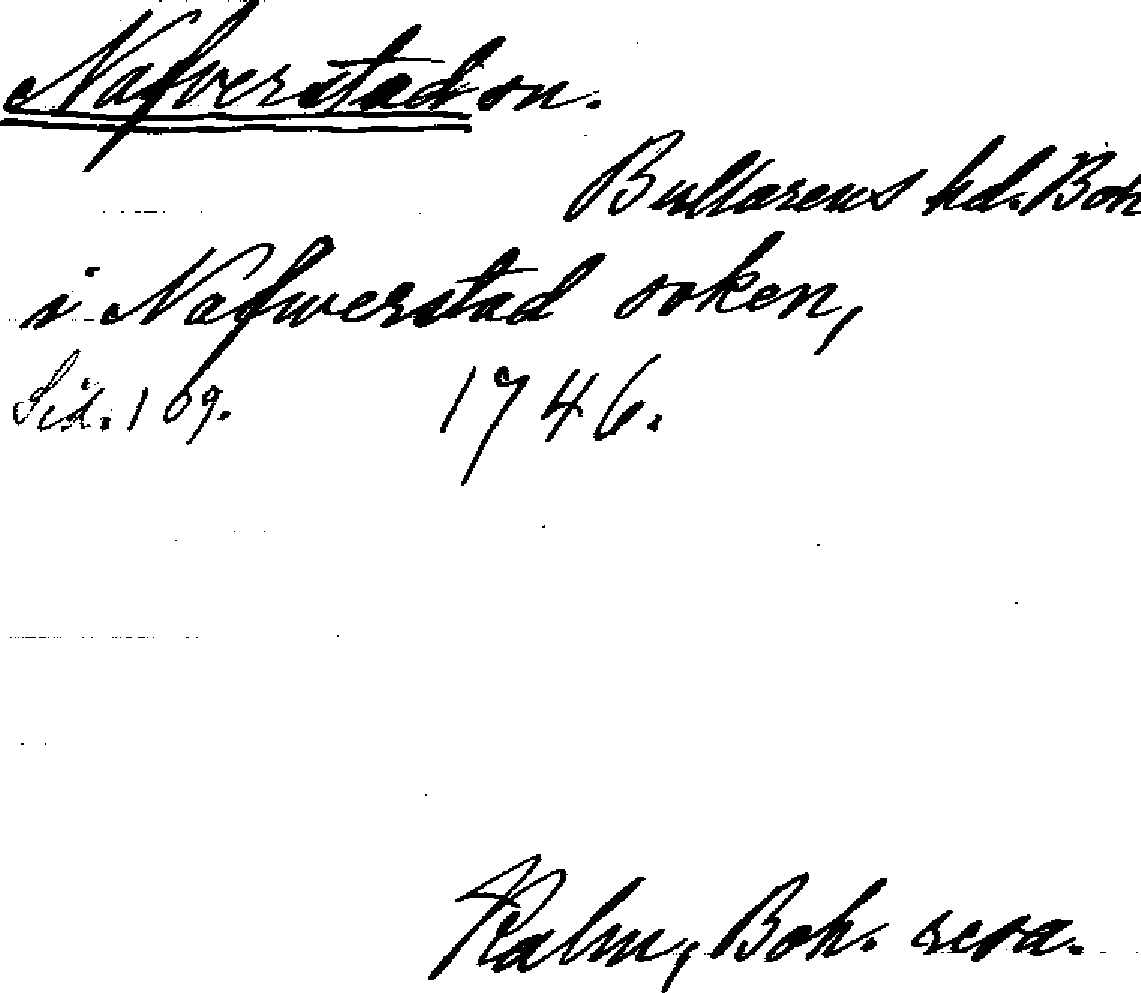 Nafverstad sn.
Bullarens hd. Boh
i Nafwerstad soken,
Sid. 169. 1746.
Kalm, Boh. resa.